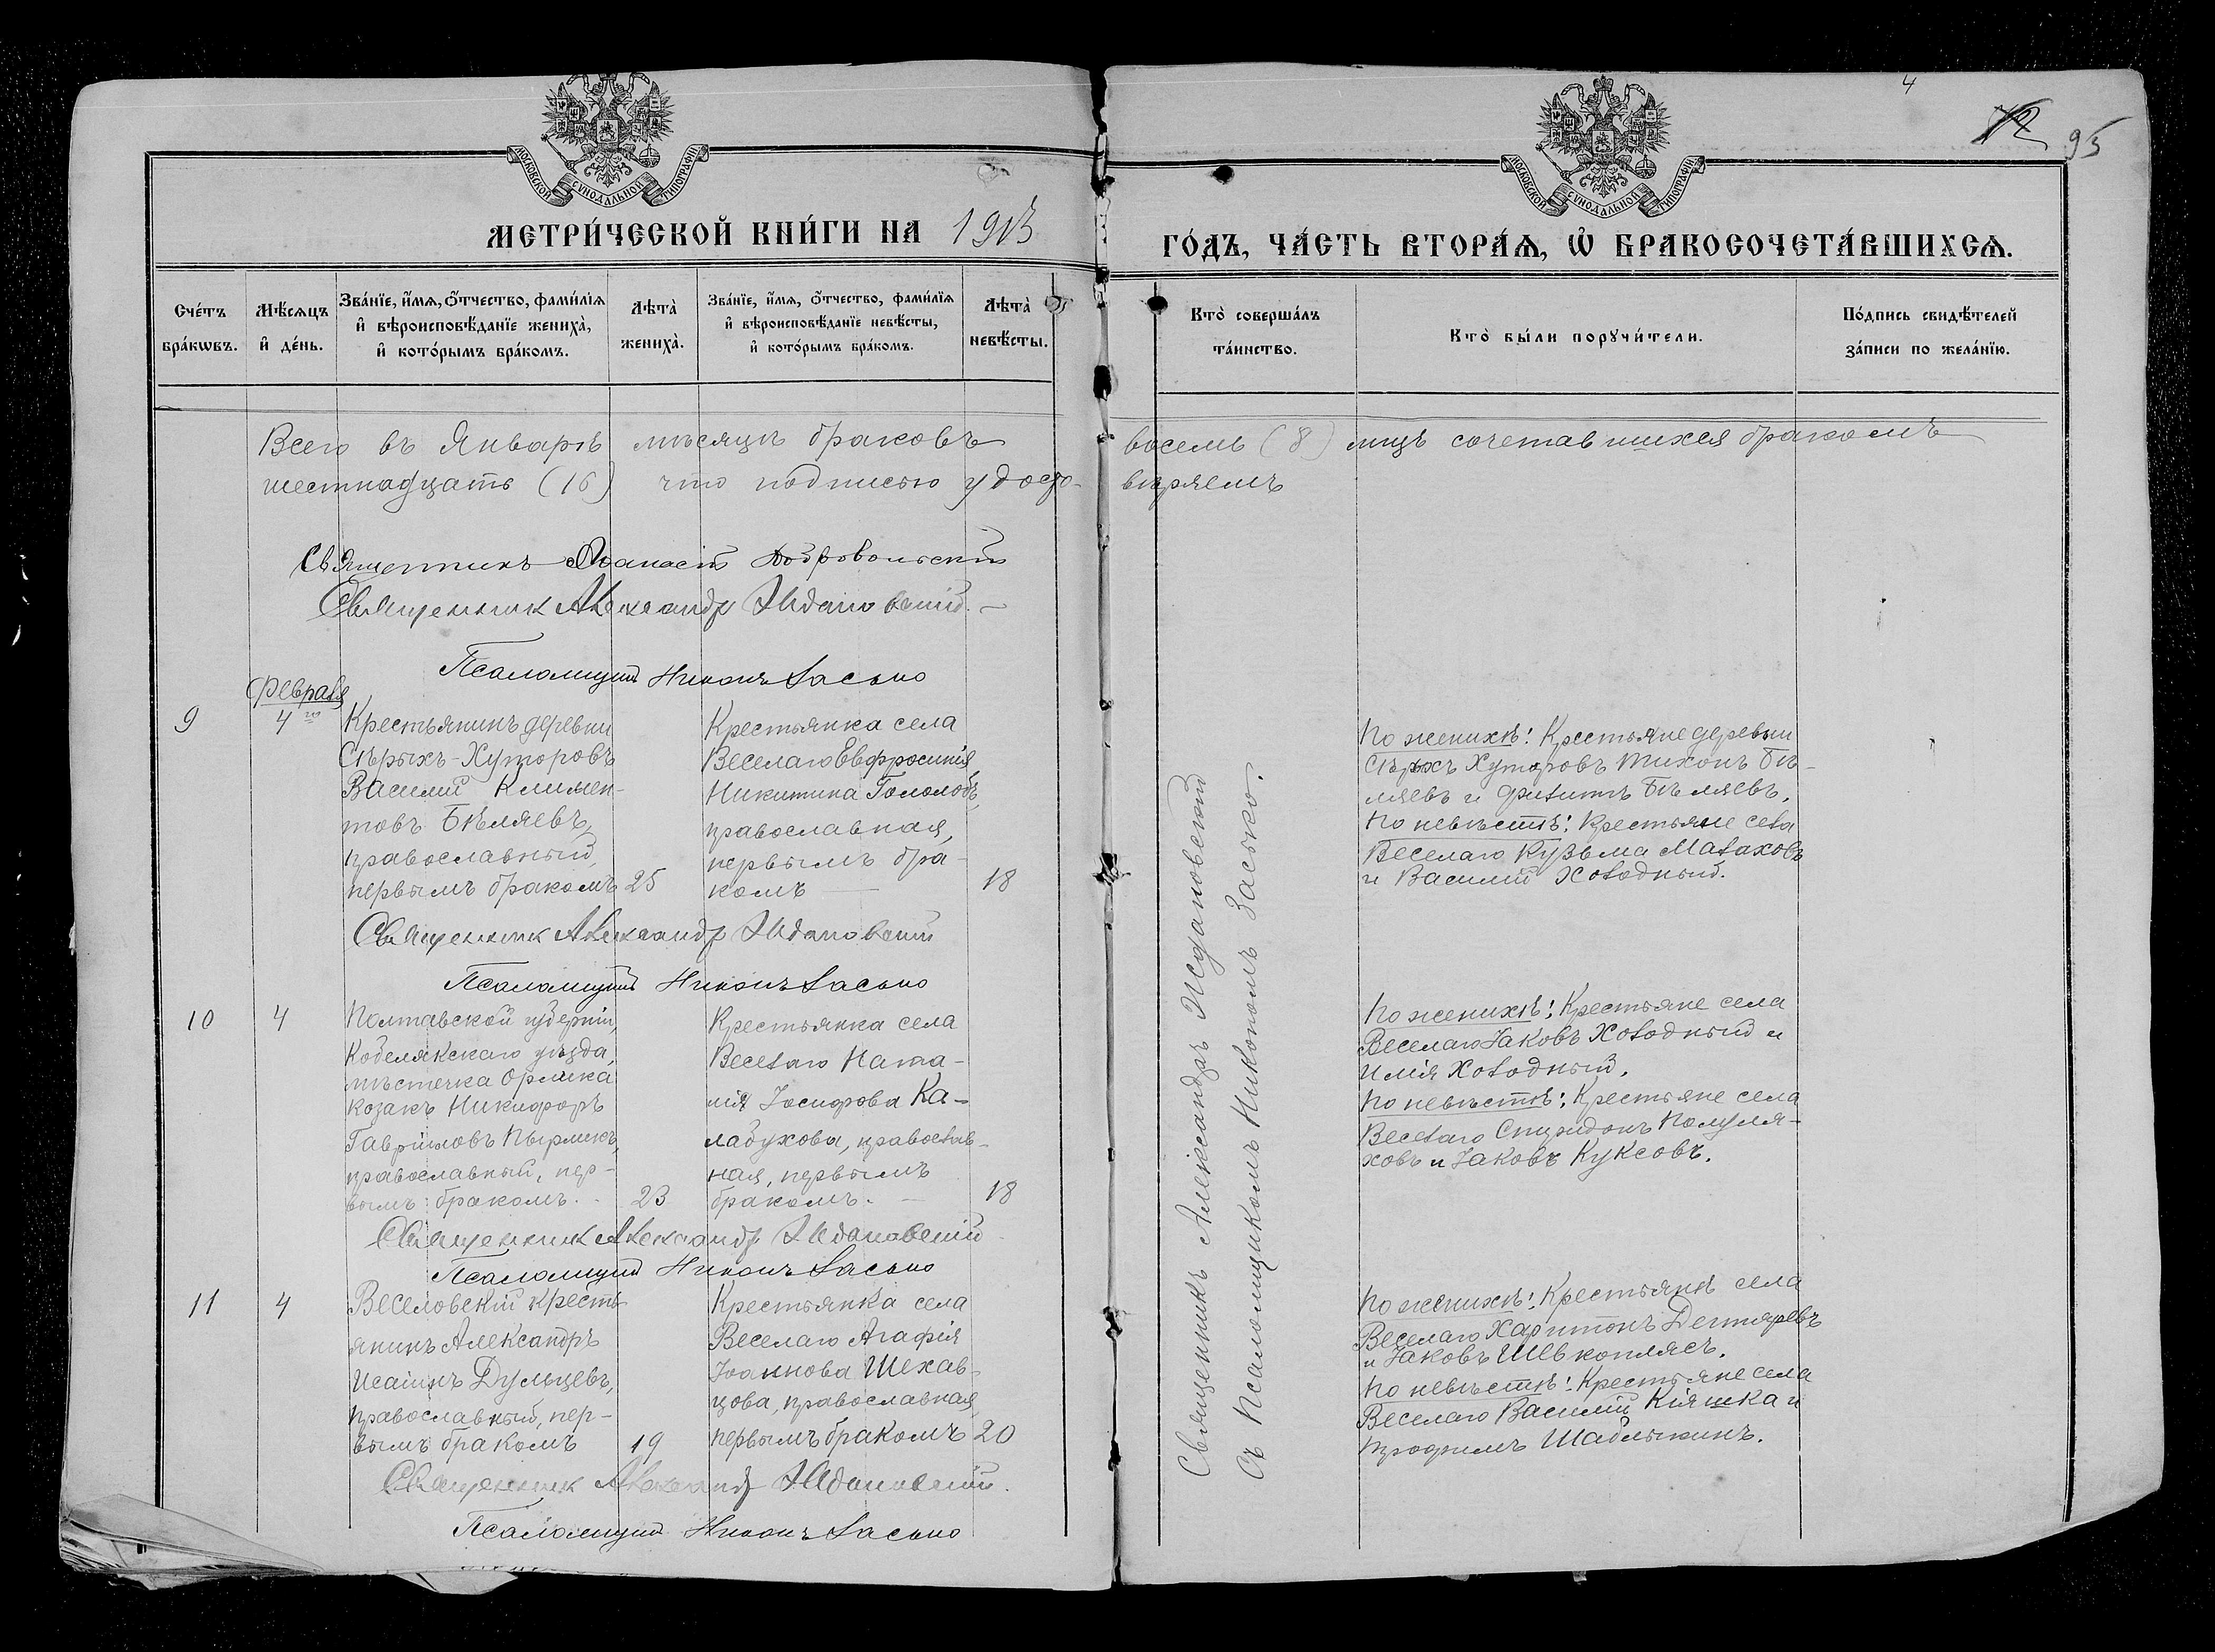 4
12
95
МОСКОВСКОЙ СѴНОДАЛЬНОЙ ТИПОГРАФІИ
МОСКОВСКОЙ СѴНОДАЛЬНОЙ ТИПОГРАФІИ
МЕТРИ́ЧЕСКОЙ КНИ́ГИ НА 1913
ГО́ДЪ, ЧА́СТЬ ВТОРА́Ѧ, Ѽ БРАКОСОЧЕТА́ВШИХСѦ.
Сче́тъ бра́кѡвъ.
Мѣ́сѧцъ и҆ де́нь.
Зва́нїе, и҆́мѧ, ѻ҆́тчество, фами́лїѧ
и҆ вѣроисповѣ́данїе жениха̀,
и҆ кото́рымъ бра́комъ.
Лѣта̀ жениха̀.
Зва́нїе, и҆́мѧ, ѻ҆́тчество, фами́лїѧ
и҆ вѣроисповѣ́данїе невѣ́сты,
и҆ кото́рымъ бра́комъ.
Лѣта̀ невѣ́сты.
Кто̀ соверша́лъ
та́инство.
Кто̀ бы́ли порꙋчи́тели.
По́дпись свидѣ́телей
за́писи по жела́нїю.
Всего въ Январѣ мѣсяцѣ браковъ восемь (8) лицъ сочетавшихся бракомъ
шестнадцать (16) что подписью удосто- вѣряемъ
Священникъ Аѳанасій Добровольскій
Священник Александр Ждановский.
Псаломщикъ Никонъ Засько
Февраля
9
4го
Крестьянинъ деревни
Сѣрыхъ-Хуторовъ
Василій Климен-
товъ Бѣляевъ,
православный,
первымъ бракомъ
25
Крестьянка села
Веселаго Евфросинія
Никитина Гололобъ,
православная,
первымъ бра-
комъ
18
По женихѣ: Крестьяне деревни
Сѣрыхъ Хуторовъ Тихонъ Бѣ-
ляевъ и Филипъ Бѣляевъ.
По невѣстѣ: Крестьяне села
Веселаго Кузьма Малаховъ
и Василій Холодный.
Священник Александр Ждановский
Псаломщикъ Никонъ Засько
10
4
Полтавской губерніи,
Кобелякскаго уѣзда,
мѣстечка Орлика
козакъ Никифоръ
Гавріиловъ Пырликъ,
православный, пер-
вымъ бракомъ.
23
Крестьянка села
Веселаго Ната-
лія Іосифова Ка-
ладухова, православ-
ная, первымъ
бракомъ.
18
По женихѣ: Крестьяне села
Веселаго Іаковъ Холодный и
Илія Холодный.
По невѣстѣ: Крестьяне села
Веселаго Спиридонъ Полуля-
ховъ и Іаковъ Куксовъ.
Священник Александр Ждановский
Псаломщикъ Никонъ Засько
11
4
Веселовскій кресть-
янинъ Александръ
Исаіинъ Дульцевъ,
православный, пер-
вымъ бракомъ
19
Крестьянка села
Веселаго Агафія
Іоаннова Шехав-
цова, православная,
первымъ бракомъ
20
По женихѣ: Крестьянѣ села
Веселаго Харитонъ Дегтяревъ
и Іаковъ Шевкоплясъ.
По невѣстѣ: Крестьяне села
Веселаго Василій Кіяшка и
Трофимъ Шаблыкинъ.
Священник Александр Ждановский.
Псаломщикъ Никонъ Засько
Священникъ Александръ Ждановскій
Съ Псаломщикомъ Никономъ Засько.